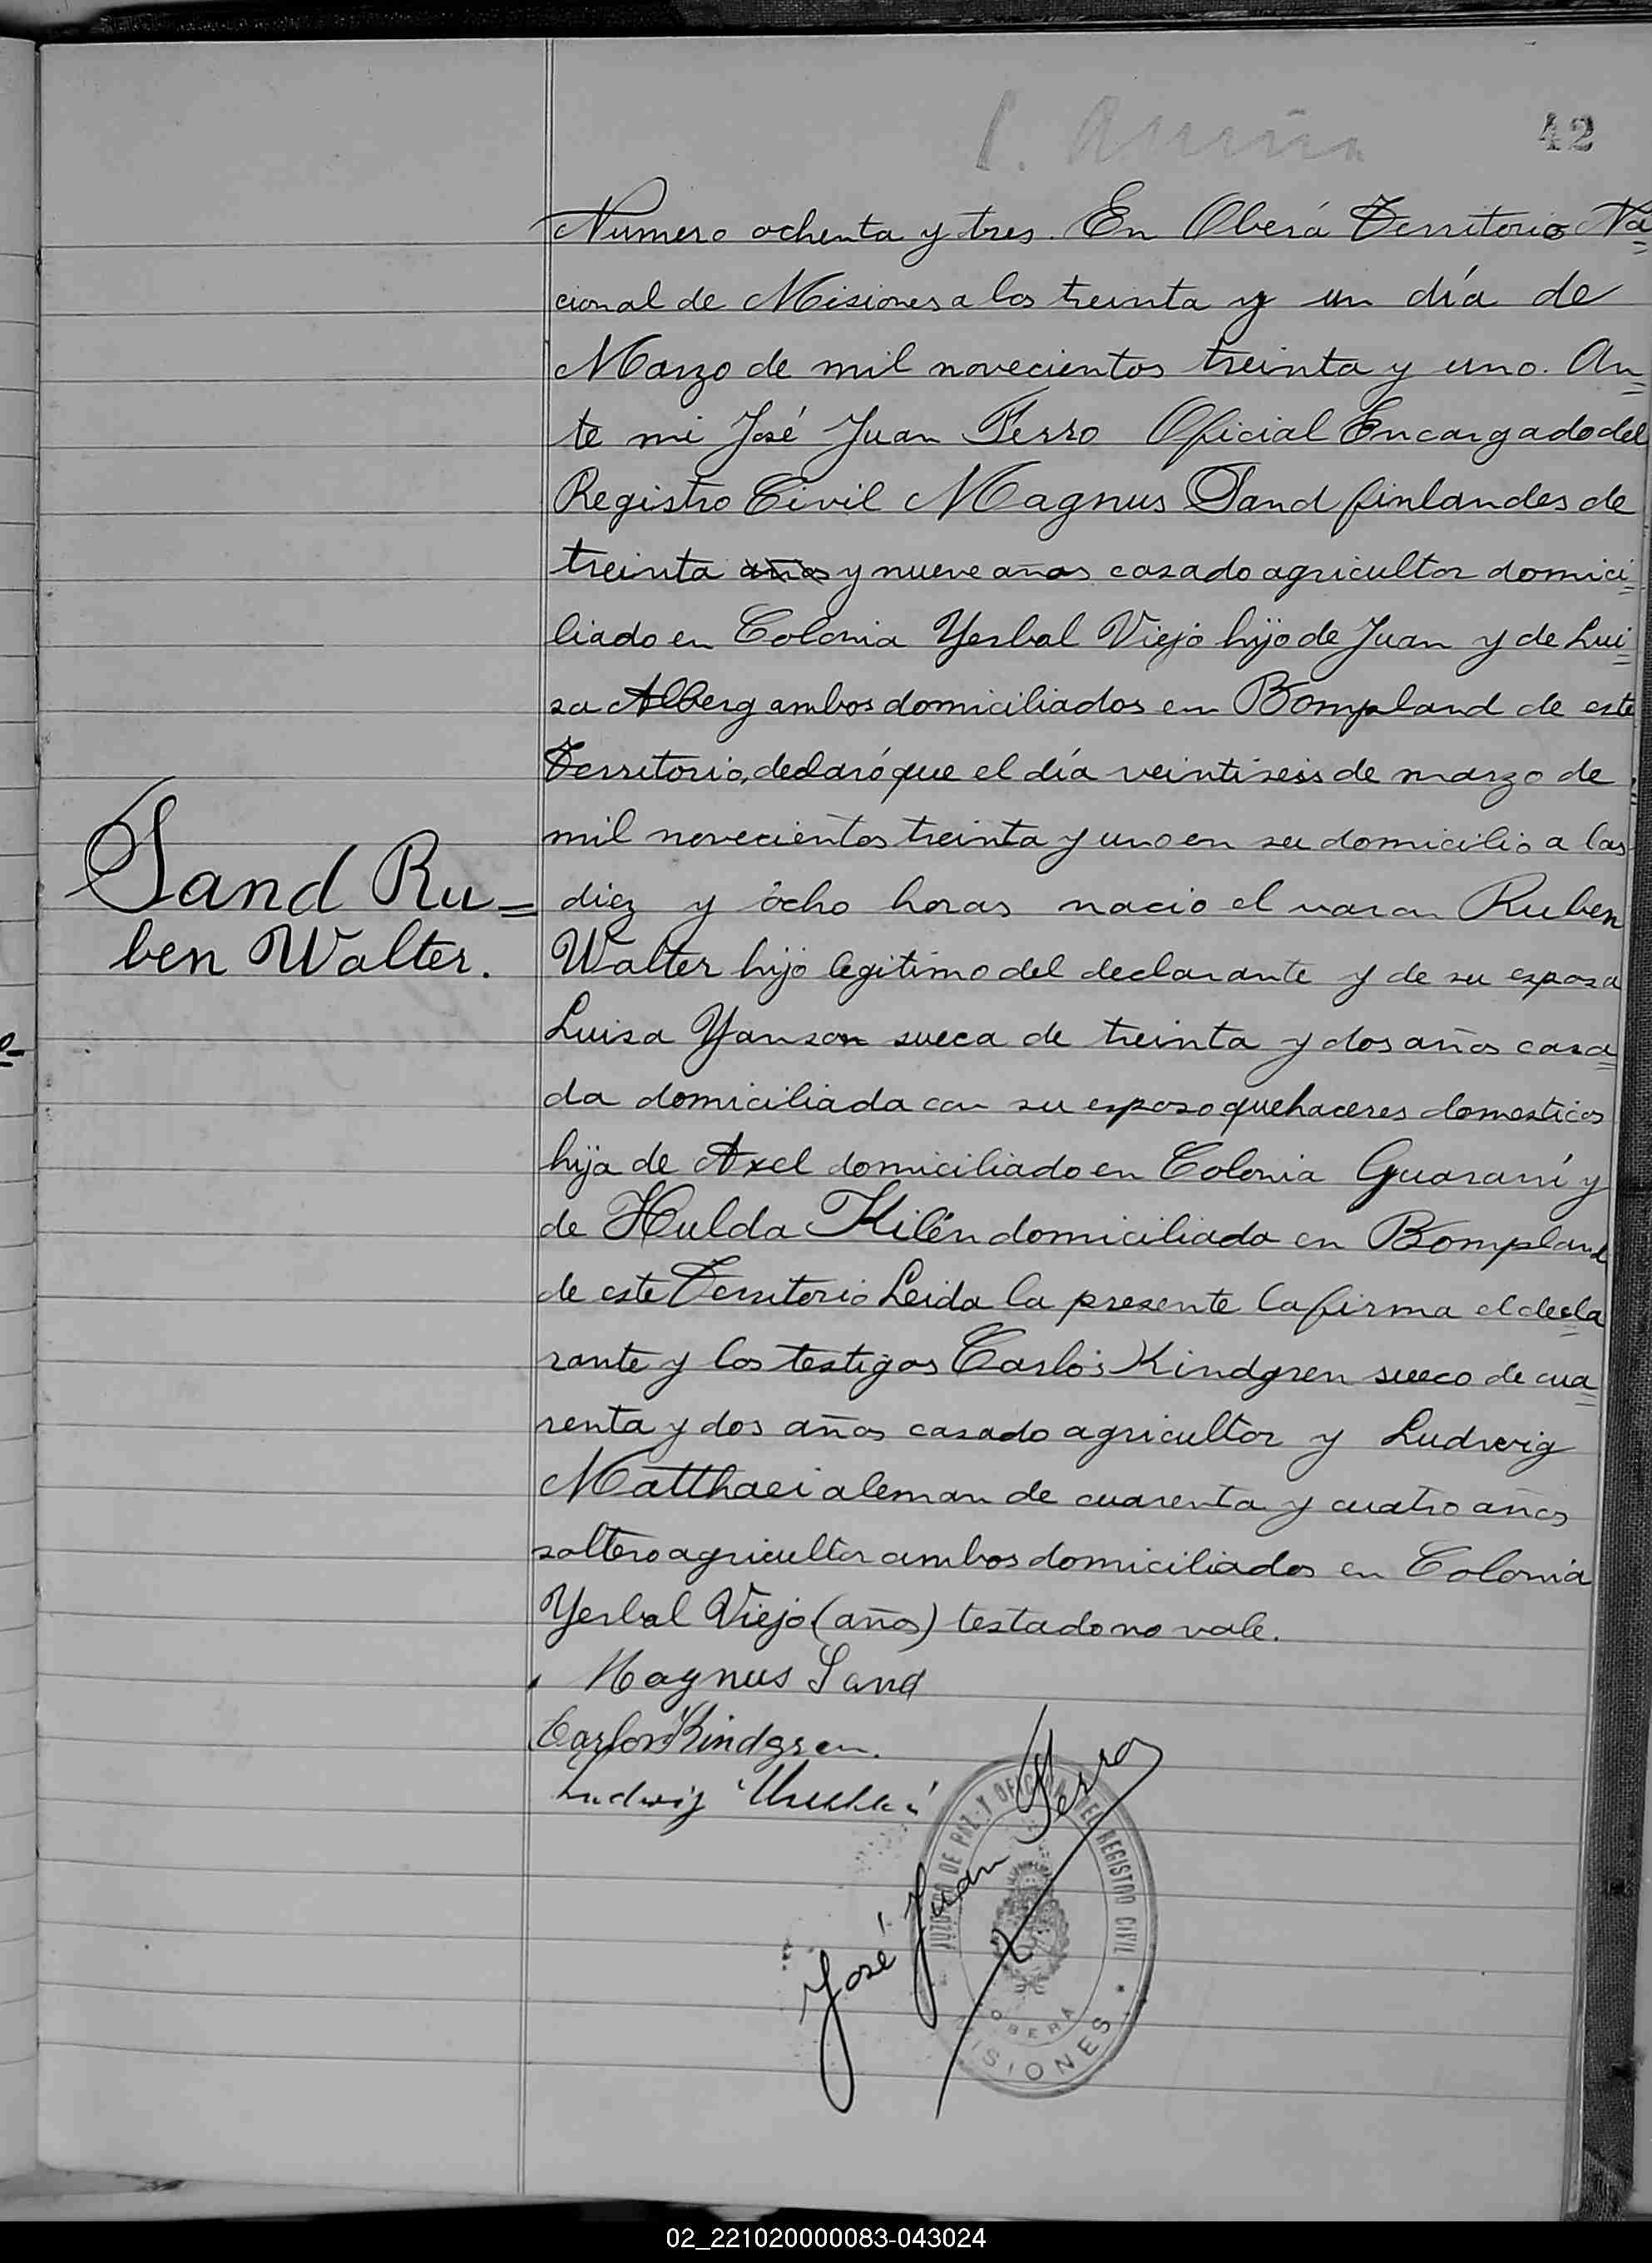 42
Numero ochenta y tres. En Oberá Territorio Na=
cional de Misiones a los treinta y un día de
Marzo de mil novecientos treinta y uno. An=
te mi José Juan Ferro Oficial Encargado del
Registro Civil Magnus Sand finlandes de
treinta años y nueve años casado agricultor domici=
liado en Colonia Yerbal Viejo hijo de Juan y de Lui=
sa Alberg ambos domiciliados en Bompland de este
Territorio, declaró que el día veintiseis de marzo de
mil novecientos treinta y uno en su domicilio a las
diez y ocho horas nacio el varon Ruben
Walter hijo legitimo del declarante y de su esposa
Luisa Yanson sueca de treinta y dos años casa=
da domiciliada con su esposo quehaceres domesticos
hija de Axel domiciliado en Colonia Guaraní y
de Hulda Kilén domiciliada en Bompland
de este Territorio Leida la presente la firma el decla=
rante y los testigos Carlos Kindgren sueco de cua=
renta y dos años casado agricultor y Ludwig
Matthaei aleman de cuarenta y cuatro años
soltero agricultor ambos domiciliados en Colonia
Yerbal Viejo (años) testado no vale.
Sand Ru=
ben Walter.
Magnus Sand
Carlos Kindgren.
Ludwig
José Juan Ferro
JUZGADO DE PAZ Y OFICINA DEL REGISTRO CIVIL
OBERA
MISIONES
02_221020000083-043024